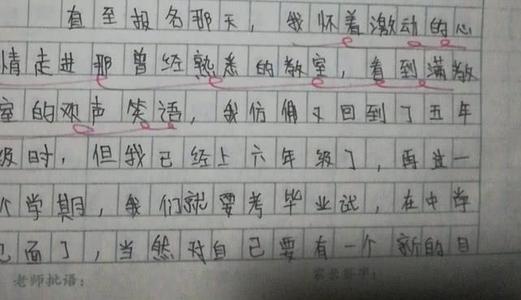 直至报名那天，我怀着激动的心
情走进那曾经熟悉的教室，看到满教
室的欢声笑语，我仿佛又回到了五年
级时，但我已经上六年级了，再过一
个学期，我们就要考毕业试，在中学
见面了，当然对自己要有一个新的目
老师批语：
家长签字：